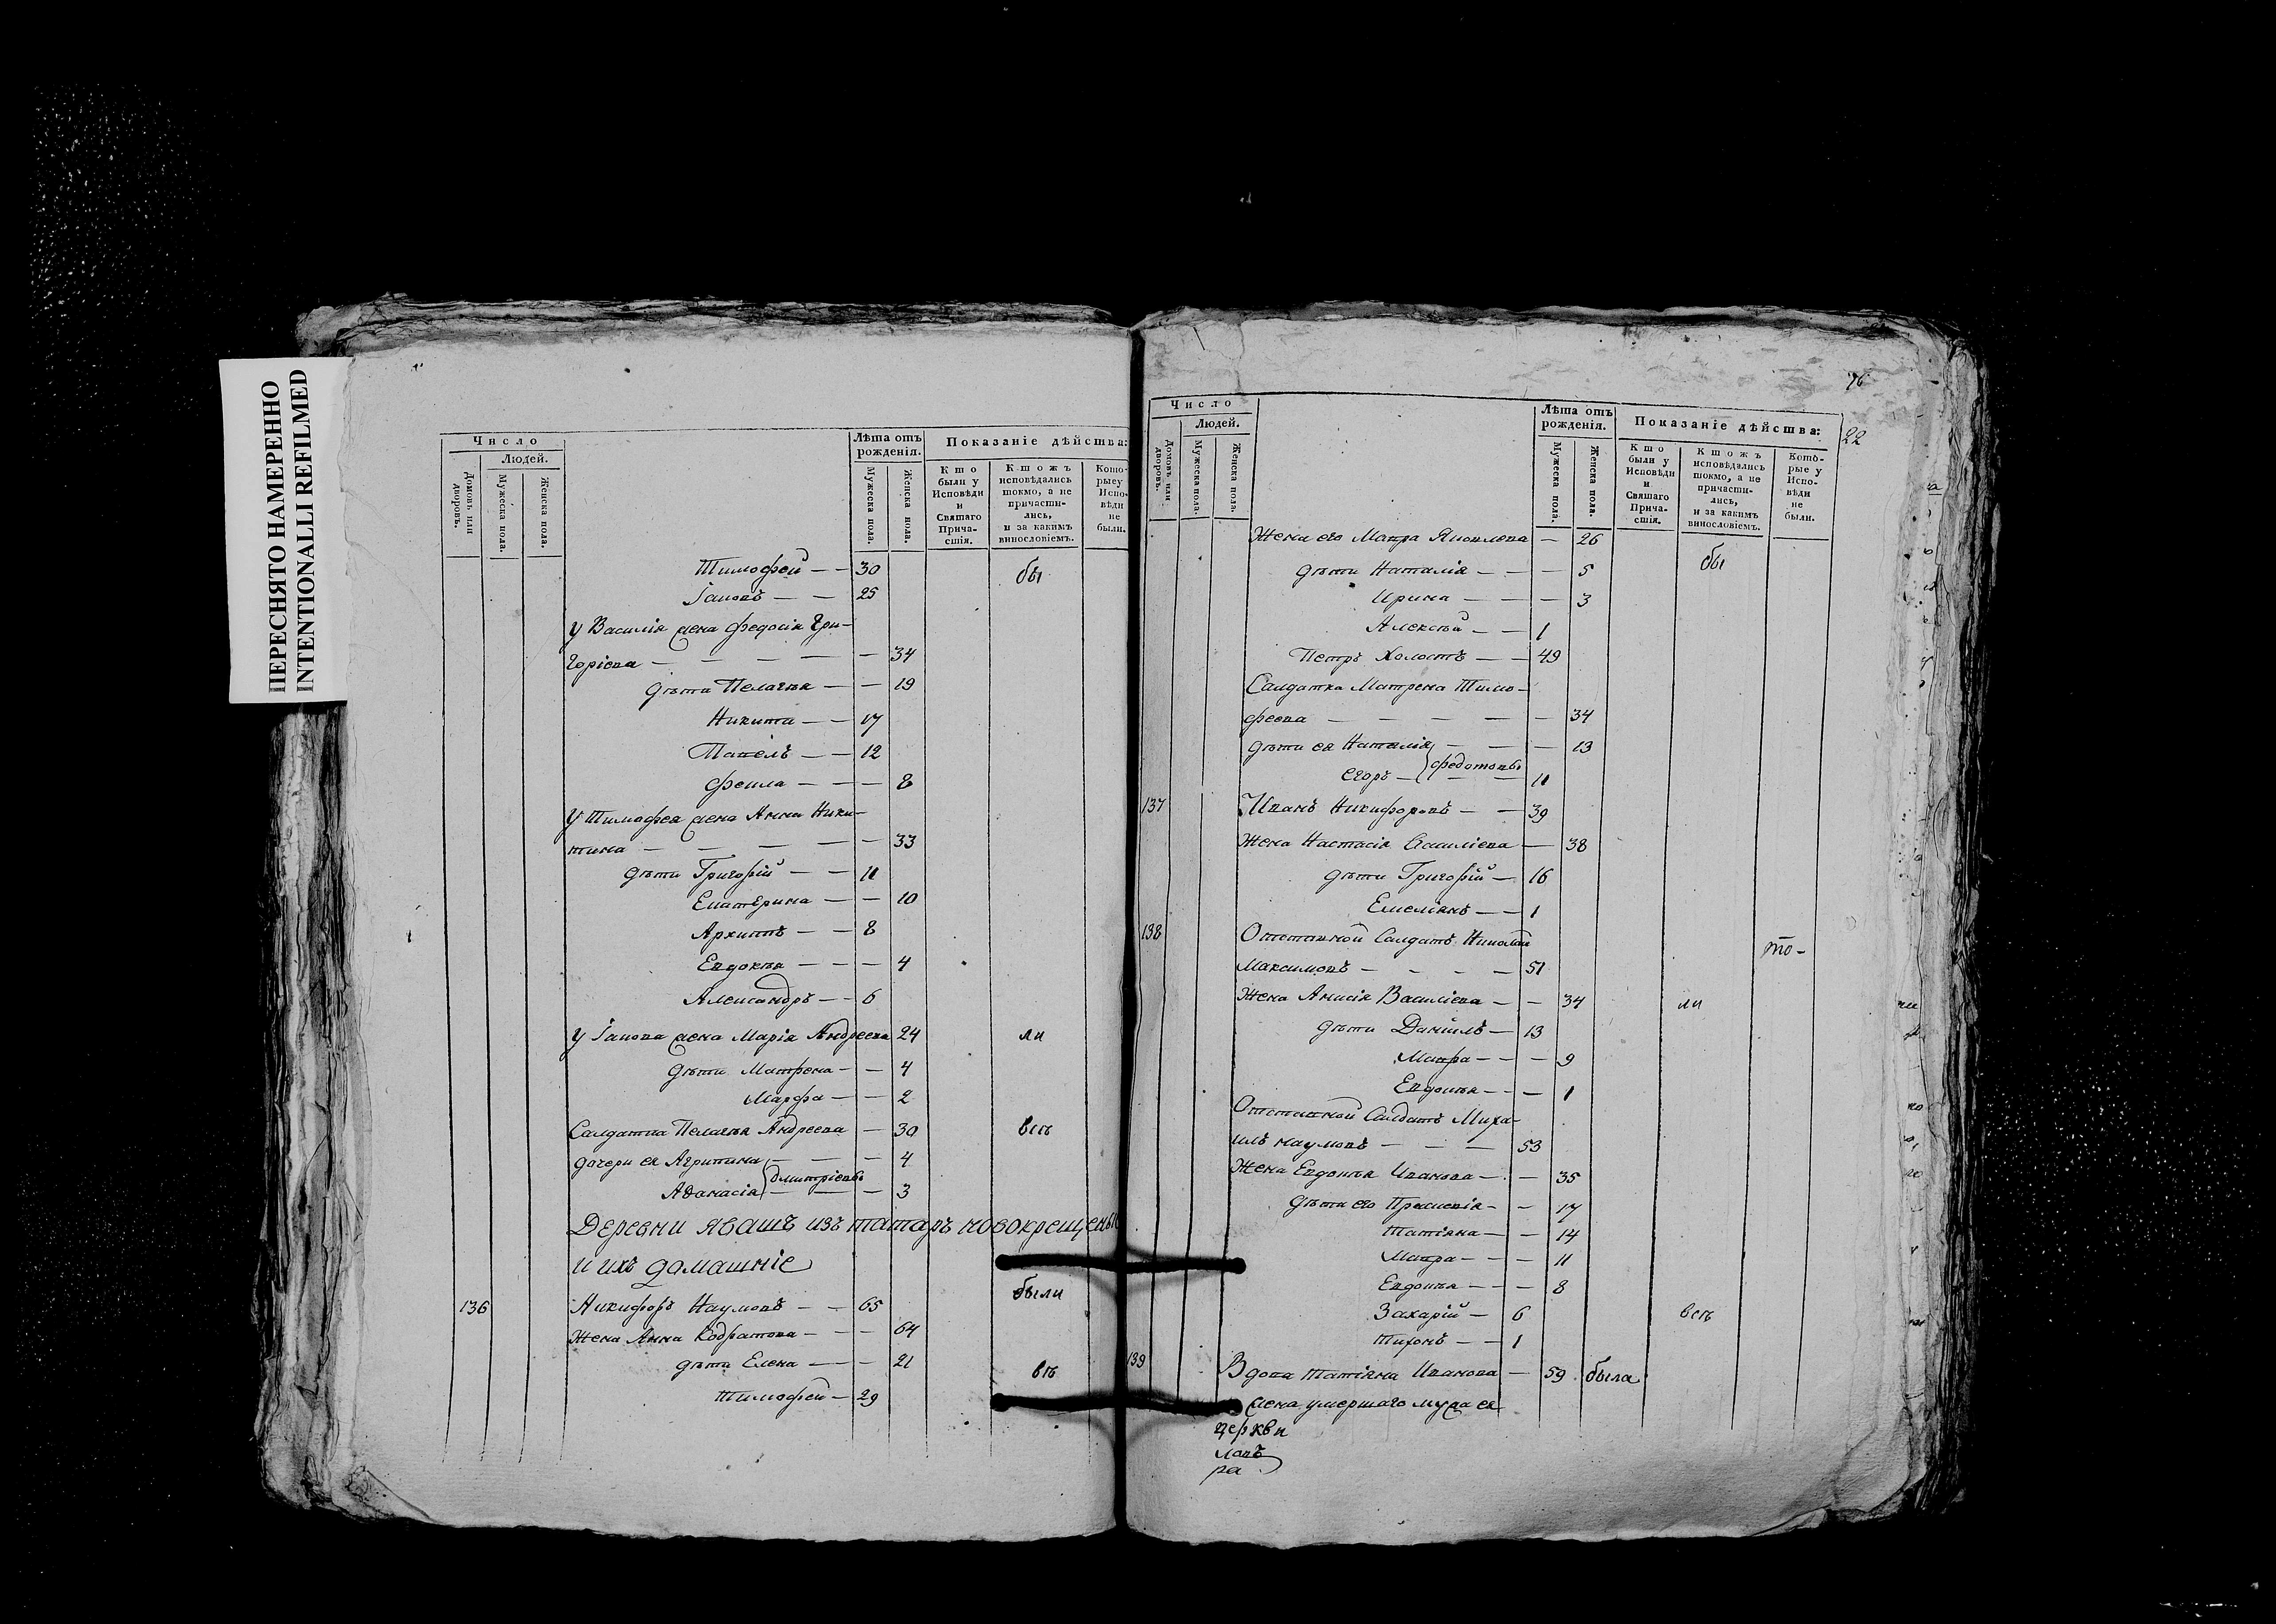 ПЕРЕСНЯТО НАМЕРЕННО
INTENTIONALLI REFILMED
Число
Людей.
Домовъ или дворовъ.
Мужеска пола.
Женска пола.
Лѣта отъ рожденія.
Мужеска пола.
Женска пола.
Показаніе дѣйства:
Кто были у Исповѣди и Святаго Причастія.
Ктожъ исповѣдались токмо, а не причастились, и за какимъ винословіемъ.
Которые у Исповѣди не были.
Тимофей — — 30 бы
Іаковъ — — 25
У Василія жена Федосія Гри-
горіева — — — — — 34
дѣти Пелагѣя — — 19
Никита — — 17
Павелъ — — 12
Фекла — — — 8
У Тимофея жена Анна Ники-
тина — — — — — 33
дѣти Григорій — — 11
Екатерина — — 10
Архиппъ — — 8
Евдокѣя — — — 4
Александръ — — 6
У Іакова жена Марія Андреева 24 ли
дѣти Матрена — — 4
Марфа — — 2
Салдатка Пелагѣя Андреева — 30 всѣ
дочери ея Агрипина — — — 4
Дмитріевы
Афанасія — — — 3
Деревни Явашъ изъ татаръ новокрещены
и ихъ домашніе
были
136 Никифоръ Наумовъ — — 65
Жена Анна Кодратова — — — 64
дѣти Елена — — — 21
всѣ
Тимофей — 29
76
22
Число
Людей.
Домовъ или дворовъ.
Мужеска пола.
Женска пола.
Лѣта отъ рожденія.
Мужеска пола.
Женска пола.
Показаніе дѣйства:
Кто были у Исповѣди и Святаго Причастія.
Ктожъ исповѣдались токмо, а не причастились, и за какимъ винословіемъ.
Которые у Исповѣди не были.
Жена его Мавра Яковлева — 26
бы
дѣти Наталія — — — 5
Ирина — — — 3
Алексѣй — — 1
Петръ Холостъ — — 49
Салдатка Матрена Тимо-
феева — — — — — 34
дѣти ея Наталія — — — 13
Федотовы
Егоръ — — — 11
137 Иванъ Никифоровъ — — 39
Жена Настасія Василіева — 38
дѣти Григорій — 16
Емеліянъ — — 1
138 Отставной Салдатъ Николай
то-
Максимовъ — — — — 51
Жена Анисія Василіева — — 34 ли
дѣти Даніилъ — 13
Мавра — — — 9
Евдокѣя — — — 1
Отставной Салдатъ Миха-
илъ Наумовъ — — — 53
Жена Евдокѣя Иванова — — 35
дѣти его Прасковія — — 17
Татіяна — — 14
Мавра — — — 11
Евдокѣя — — — 8
Захарій — 6 всѣ
Тихонъ — — 1
139 Вдова Татіяна Иванова — 59 была
жена умершаго мужа ея
церкви